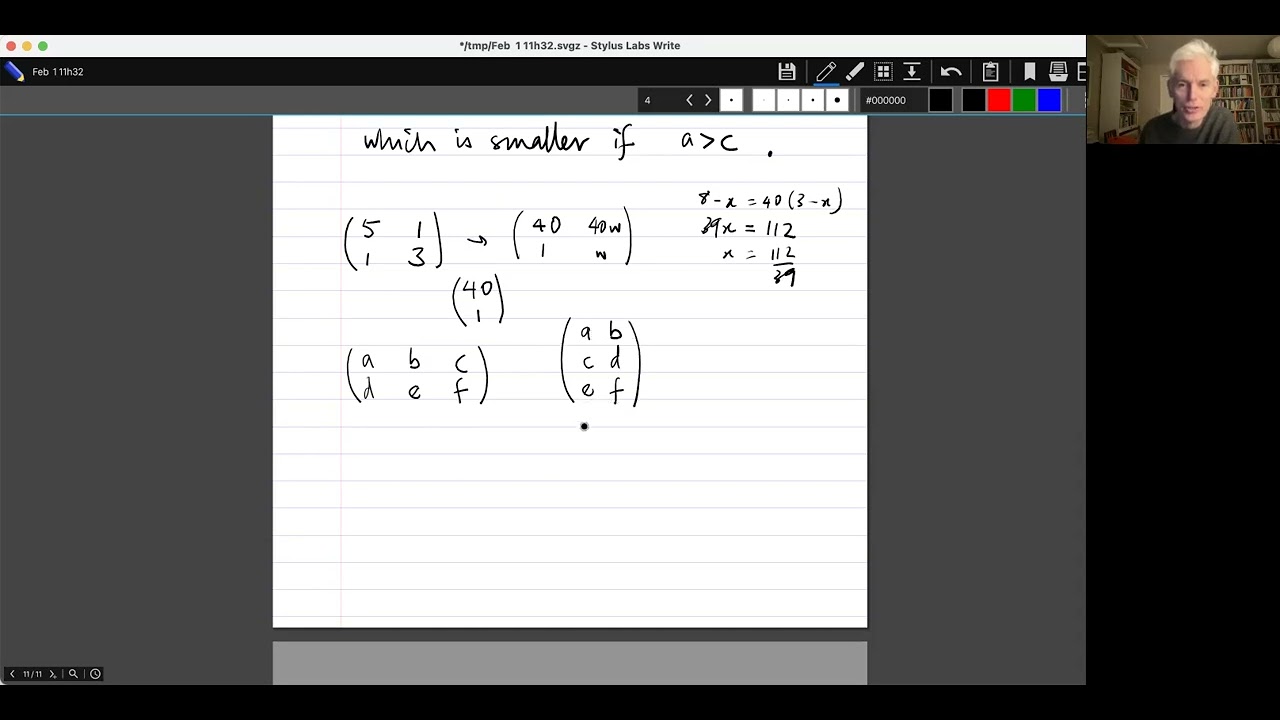 */tmp/Feb 1 11h32.svgz - Stylus Labs Write
Feb 1 11h32
4
#000000
which is smaller if a>c .
8-x = 40(3-x)
39x = 112
x = 112/39
(5 1
1 3) → (40 40w
1 w)
(40
1)
(a b c
d e f)
(a b
c d
e f)
11/11